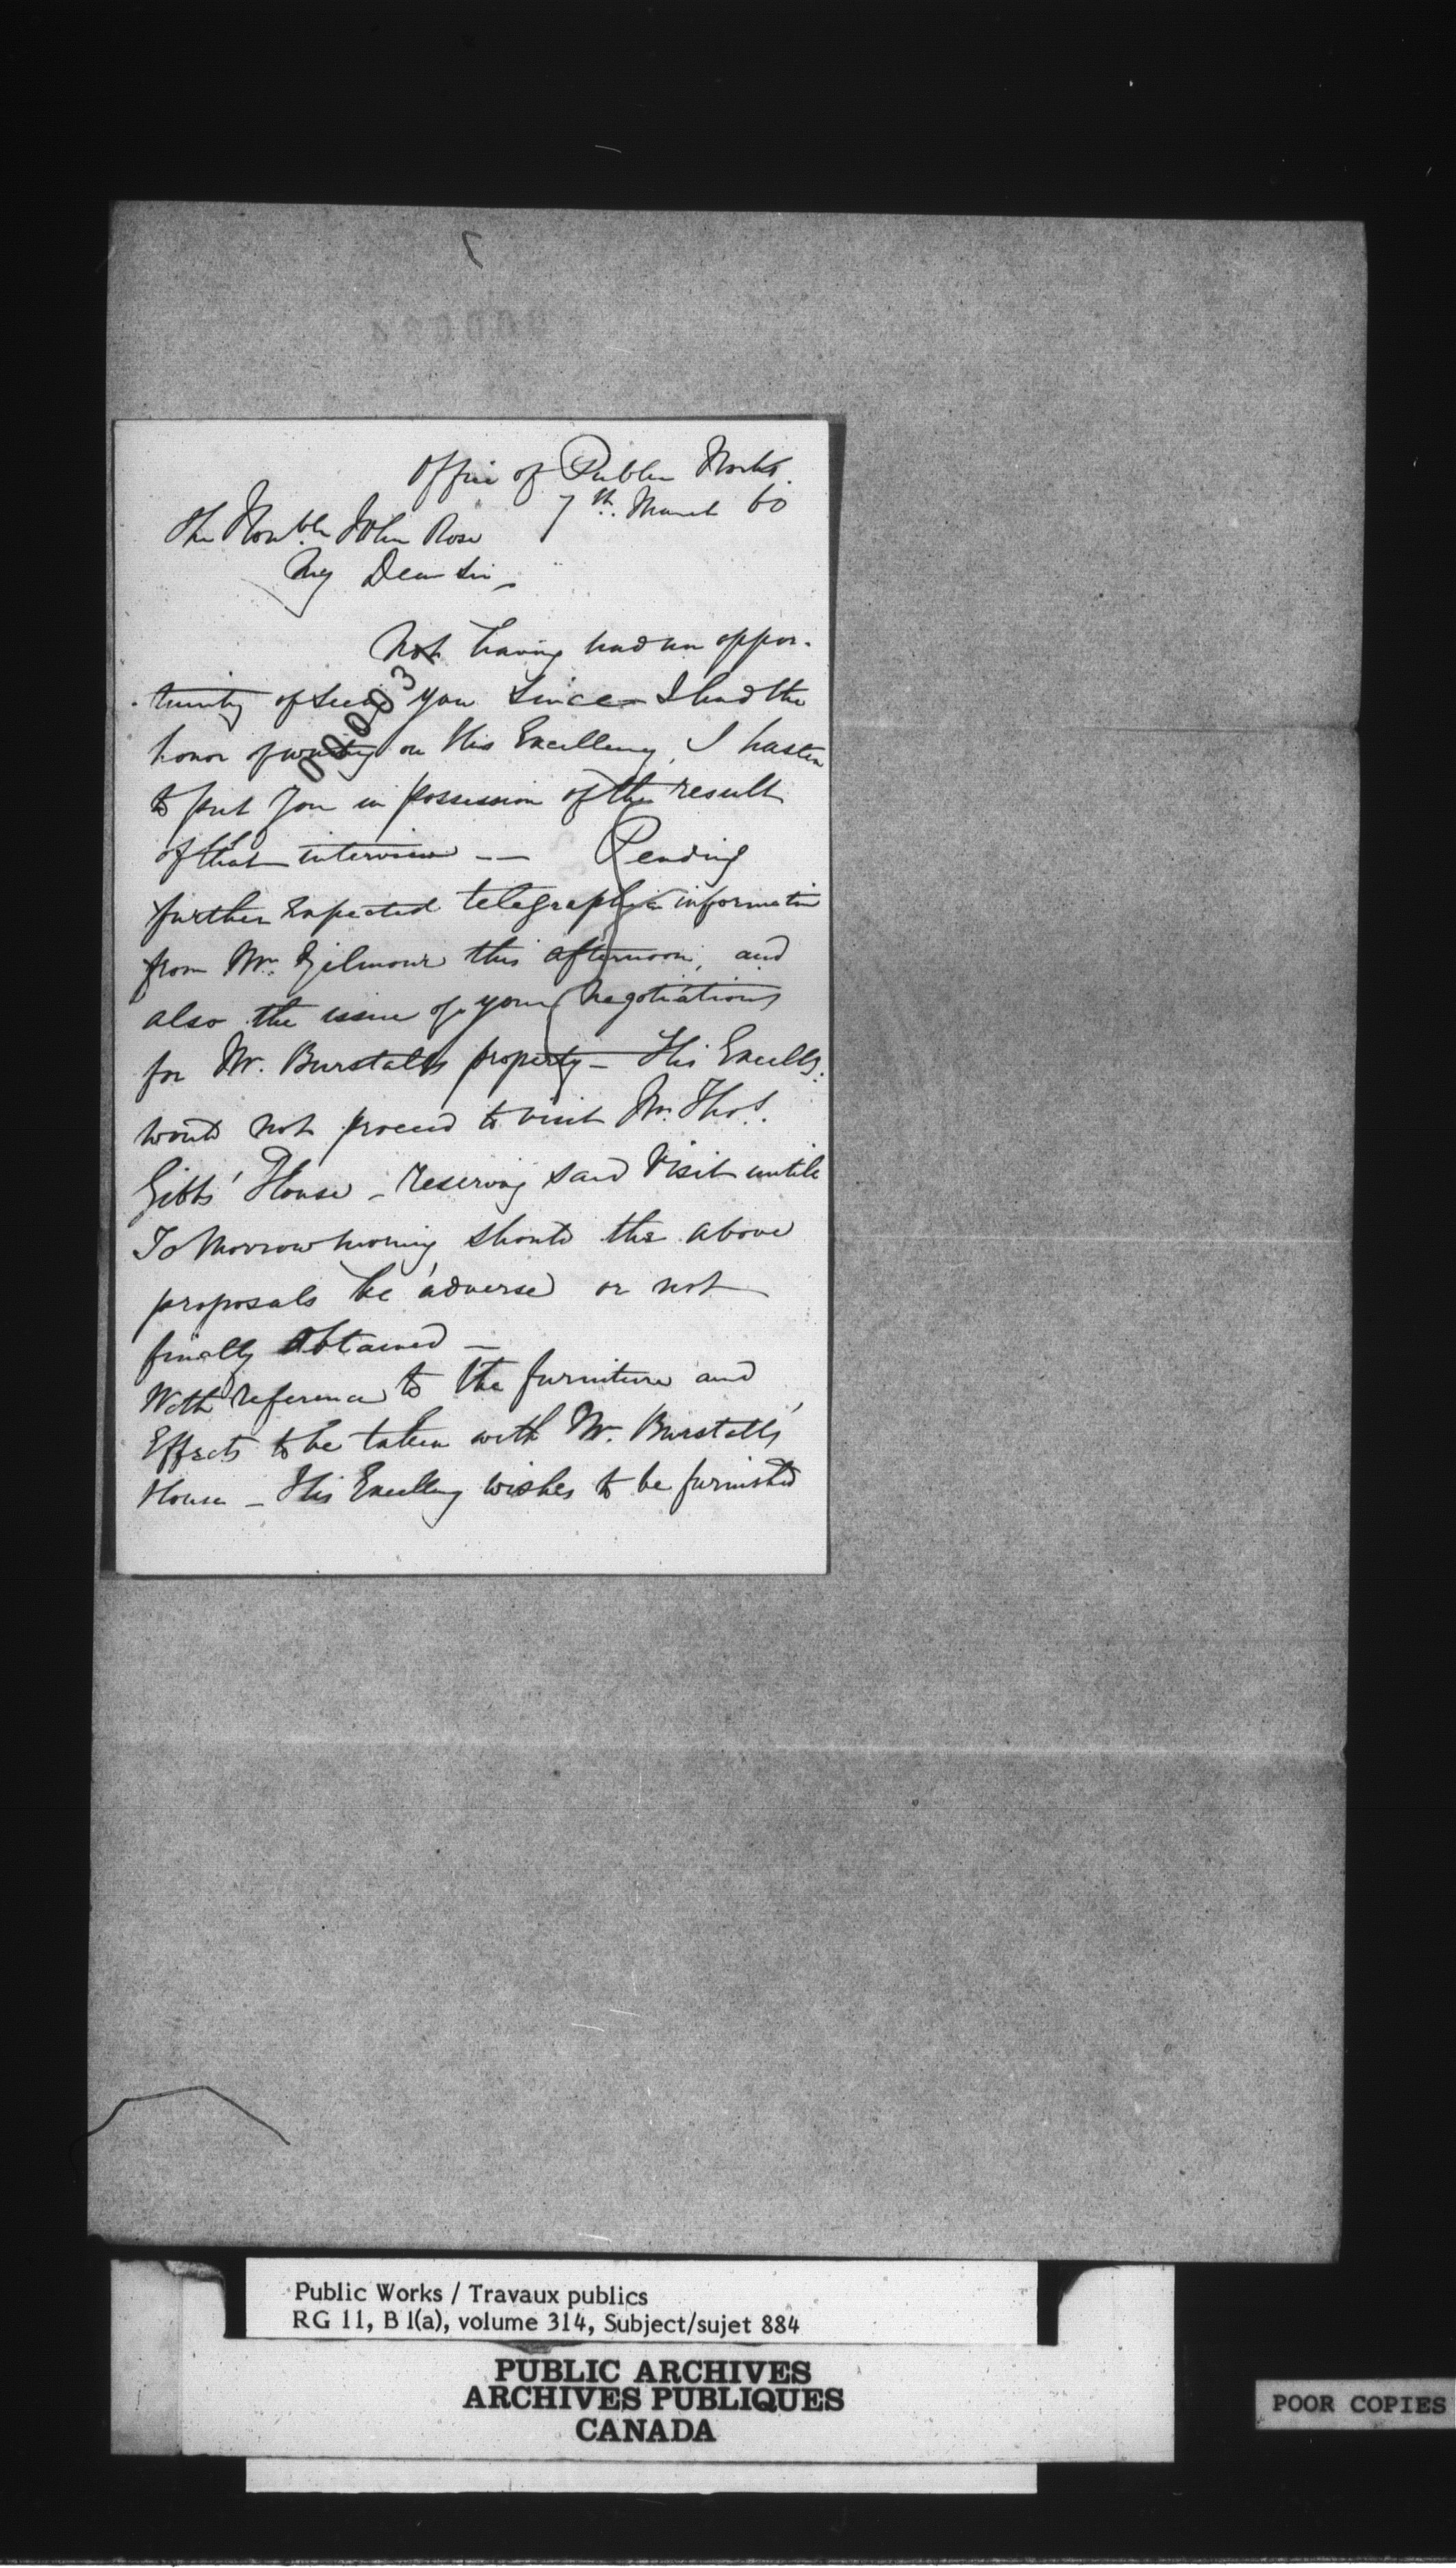 Office of Public Works.
7th. March 60
The Honble John Rose
My Dear Sir,
Not having had an oppor-
tunity of seeing you since I had the
honor of waiting on His Excellency, I hasten
to put you in possession of the result
of that interview -- Pending
further expected telegraphic information
from Mr. Gilmour this afternoon, and
also the issue of your negotiations
for Mr. Burstall's property - His Excelly.
would not proceed to visit Mr. Thos.
Gibbs' House - reserving said Visit until
To Morrow morning should the above
proposals be adverse or not
finally obtained -
With reference to the furniture and
Effects to be taken with Mr. Burstall's
House - His Excellency wishes to be furnished
00003
Public Works / Travaux publics
RG 11, B 1(a), volume 314, Subject/sujet 884
PUBLIC ARCHIVES
ARCHIVES PUBLIQUES
CANADA
POOR COPIES